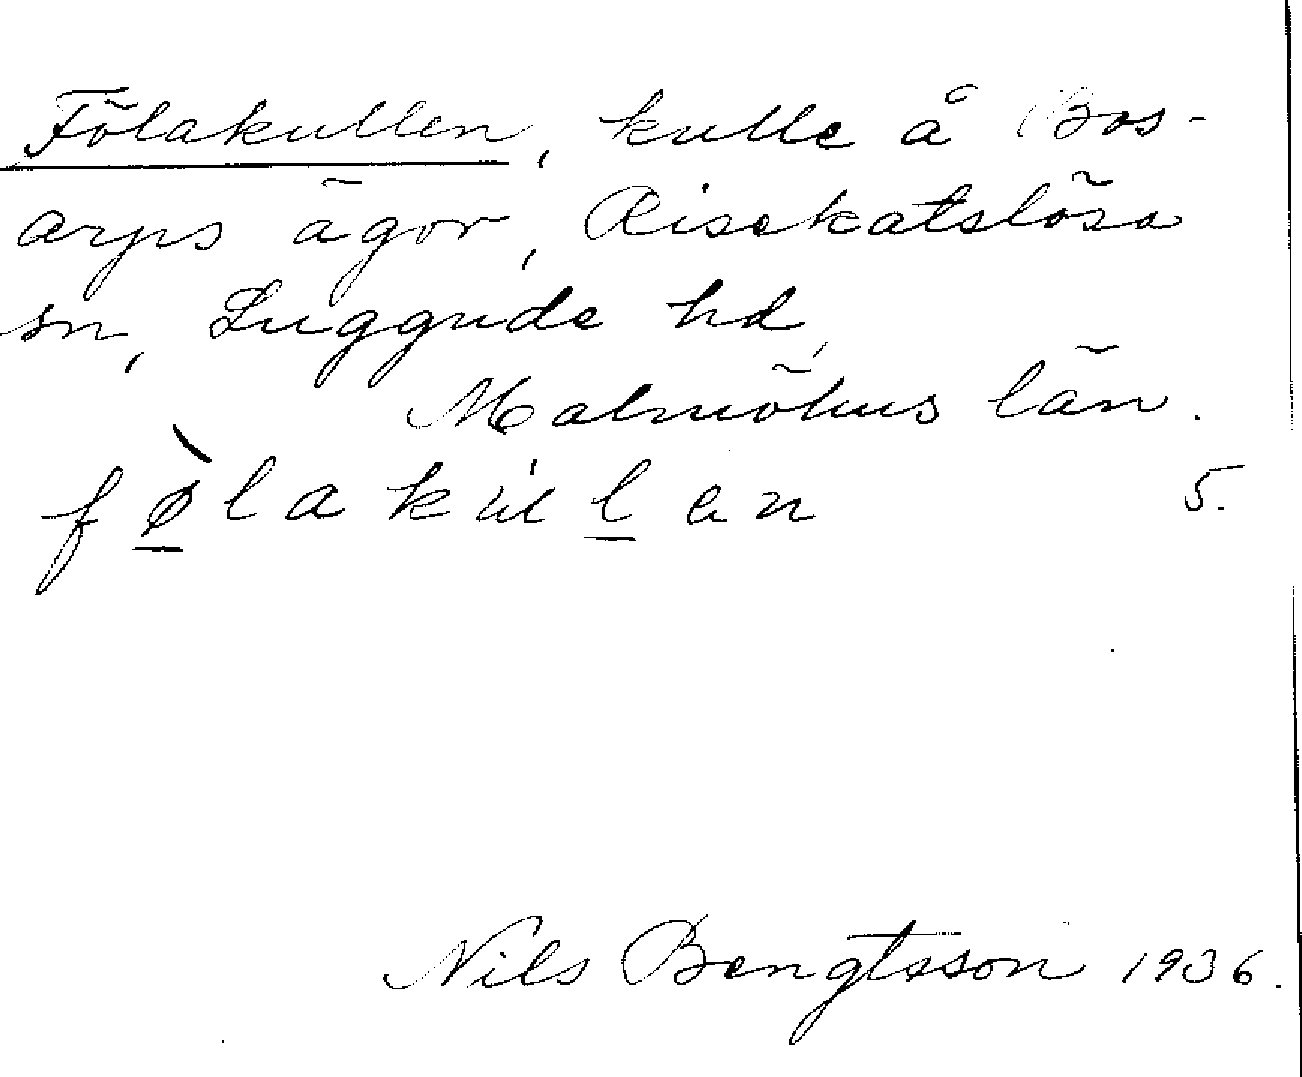 Fölakullen, kulle å Bos-
arps ägor, Risekatslösa
sn, Luggude hd,
Malmöhus län.
fø̀lakúlan 5.
Nils Bengtsson 1936.